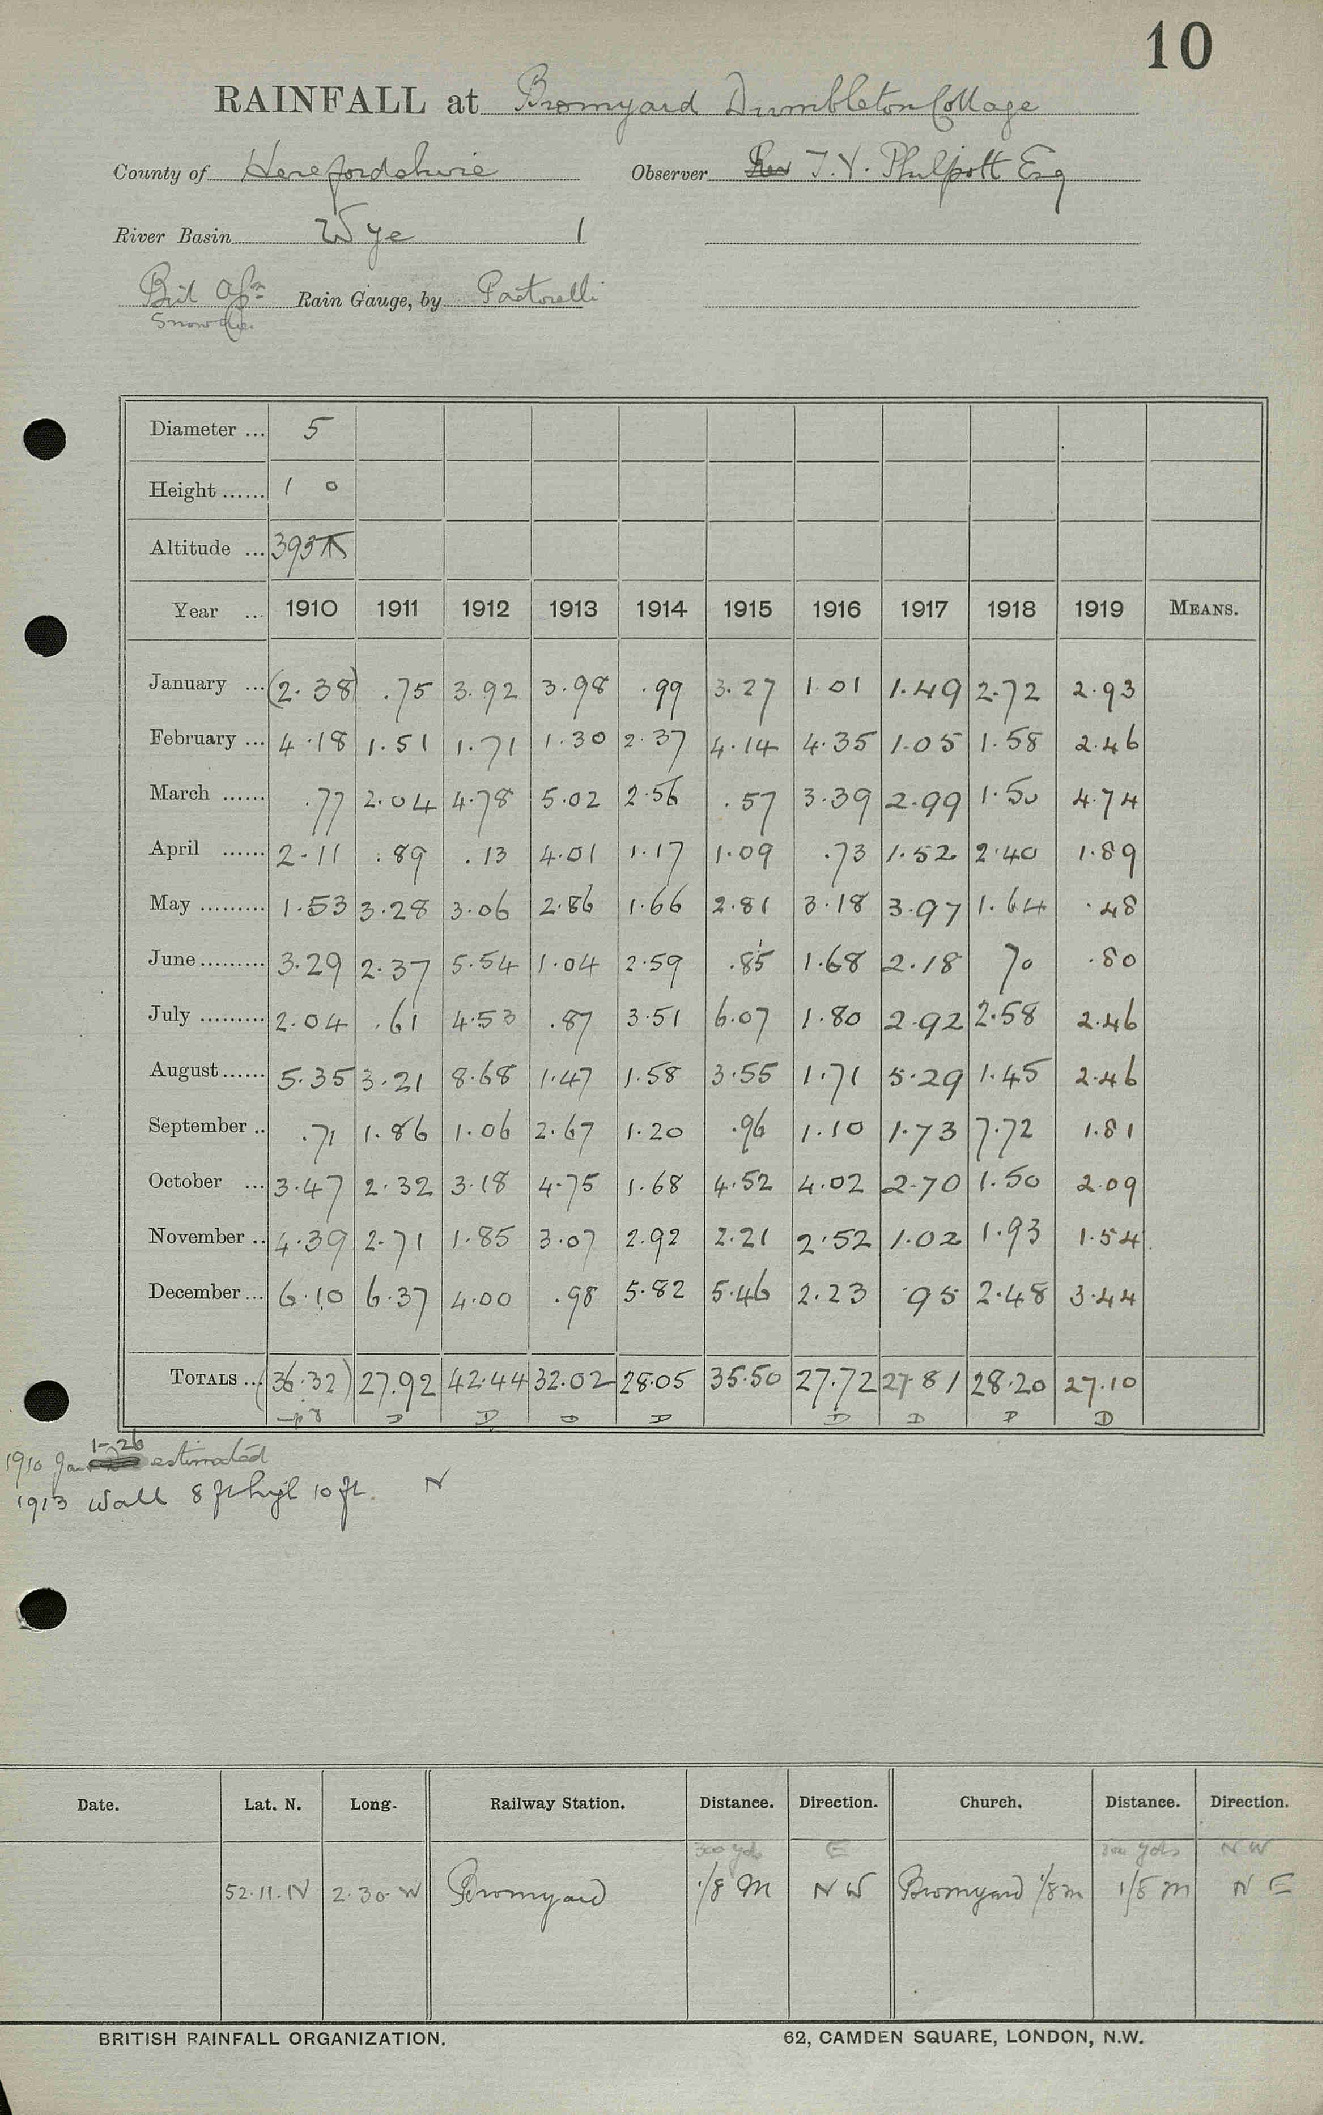 10
RAINFALL at Bromyard Dumbleton Cottage
County of Herefordshire Observer Rev T. Y. Philpott Esq
River Basin Wye 1
Brit Assn Rain Gauge, by Pastorelli
Snowdn.
Diameter ... 5
Height ...... 1 0
Altitude ... 393
Year ... 1910 1911 1912 1913 1914 1915 1916 1917 1918 1919 MEANS.
January ... (2.38) .75 3.92 3.98 .99 3.27 1.01 1.49 2.72 2.93
February ... 4.18 1.51 1.71 1.30 2.37 4.14 4.35 1.05 1.58 2.46
March ...... .77 2.04 4.78 5.02 2.56 .57 3.39 2.99 1.50 4.74
April ...... 2.11 .89 .13 4.01 1.17 1.09 .73 1.52 2.40 1.89
May ......... 1.53 3.28 3.06 2.86 1.66 2.81 3.18 3.97 1.64 .48
June ......... 3.29 2.37 5.54 1.04 2.59 .85 1.68 2.18 70 .80
July ......... 2.04 .61 4.53 .87 3.51 6.07 1.80 2.92 2.58 2.46
August ...... 5.35 3.21 8.68 1.47 1.58 3.55 1.71 5.29 1.45 2.46
September .. .71 1.86 1.06 2.67 1.20 .96 1.10 1.73 7.72 1.81
October ... 3.47 2.32 3.18 4.75 1.68 4.52 4.02 2.70 1.50 2.09
November .. 4.39 2.71 1.85 3.07 2.92 2.21 2.52 1.02 1.93 1.54
December ... 6.10 6.37 4.00 .98 5.82 5.46 2.23 .95 2.48 3.44
TOTALS ... (36.32) 27.92 42.44 32.02 28.05 35.50 27.72 27.81 28.20 27.10
D D D D D D P D
1910 Jan 1-26 estimated
1913 Wall 8 ft high 10 ft. N
Date. Lat. N. Long. Railway Station. Distance. Direction. Church. Distance. Direction.
300 yds E 200 yds NW
52.11.N 2.30.W Bromyard 1/8 M NW Bromyard 1/8 m 1/5 m NE
BRITISH RAINFALL ORGANIZATION. 62, CAMDEN SQUARE, LONDON, N.W.